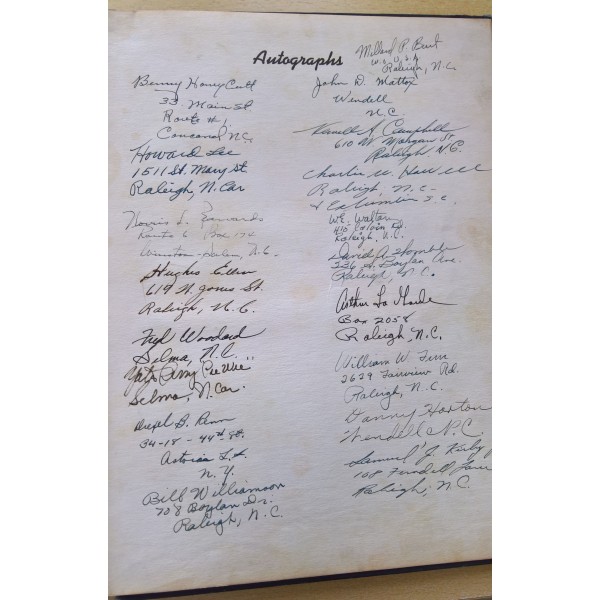 Autographs
Benny Honeycutt
33 Main St.
Route #1,
Concord N.C.
Howard Lee
1511 St. Mary St
Raleigh, N. Car
Norris L. Edwards
Route 6 Box 174
Winston Salem, N.C.
Hughes
619 N. Jones St.
Raleigh, N.C.
Woodard
Selma, N.C.
Perry "Pee Wee"
Selma, N. Car.
34-18-44th St.
Astoria L.I.
N.Y.
Bill Williamson
708 Boylan Dr.
Raleigh, N.C.
Millard P. Burt
Raleigh, N.C.
John D. Mattox
Wendell
N.C.
A. Campbell
610 W. Morgan St
Raleigh, N.C.
Charlie W.
Raleigh, N.C.
& Columbia S.C.
W.E. Walton
Raleigh, N.C.
David A.
336 S. Boylan Ave.
Raleigh, N.C.
Arthur
Box 2058
Raleigh, N.C.
William W.
2629 Fairview Rd.
Raleigh, N.C.
Danny Horton
Wendell N.C.
Samuel J. Kirby
108 Lane
Raleigh, N.C.